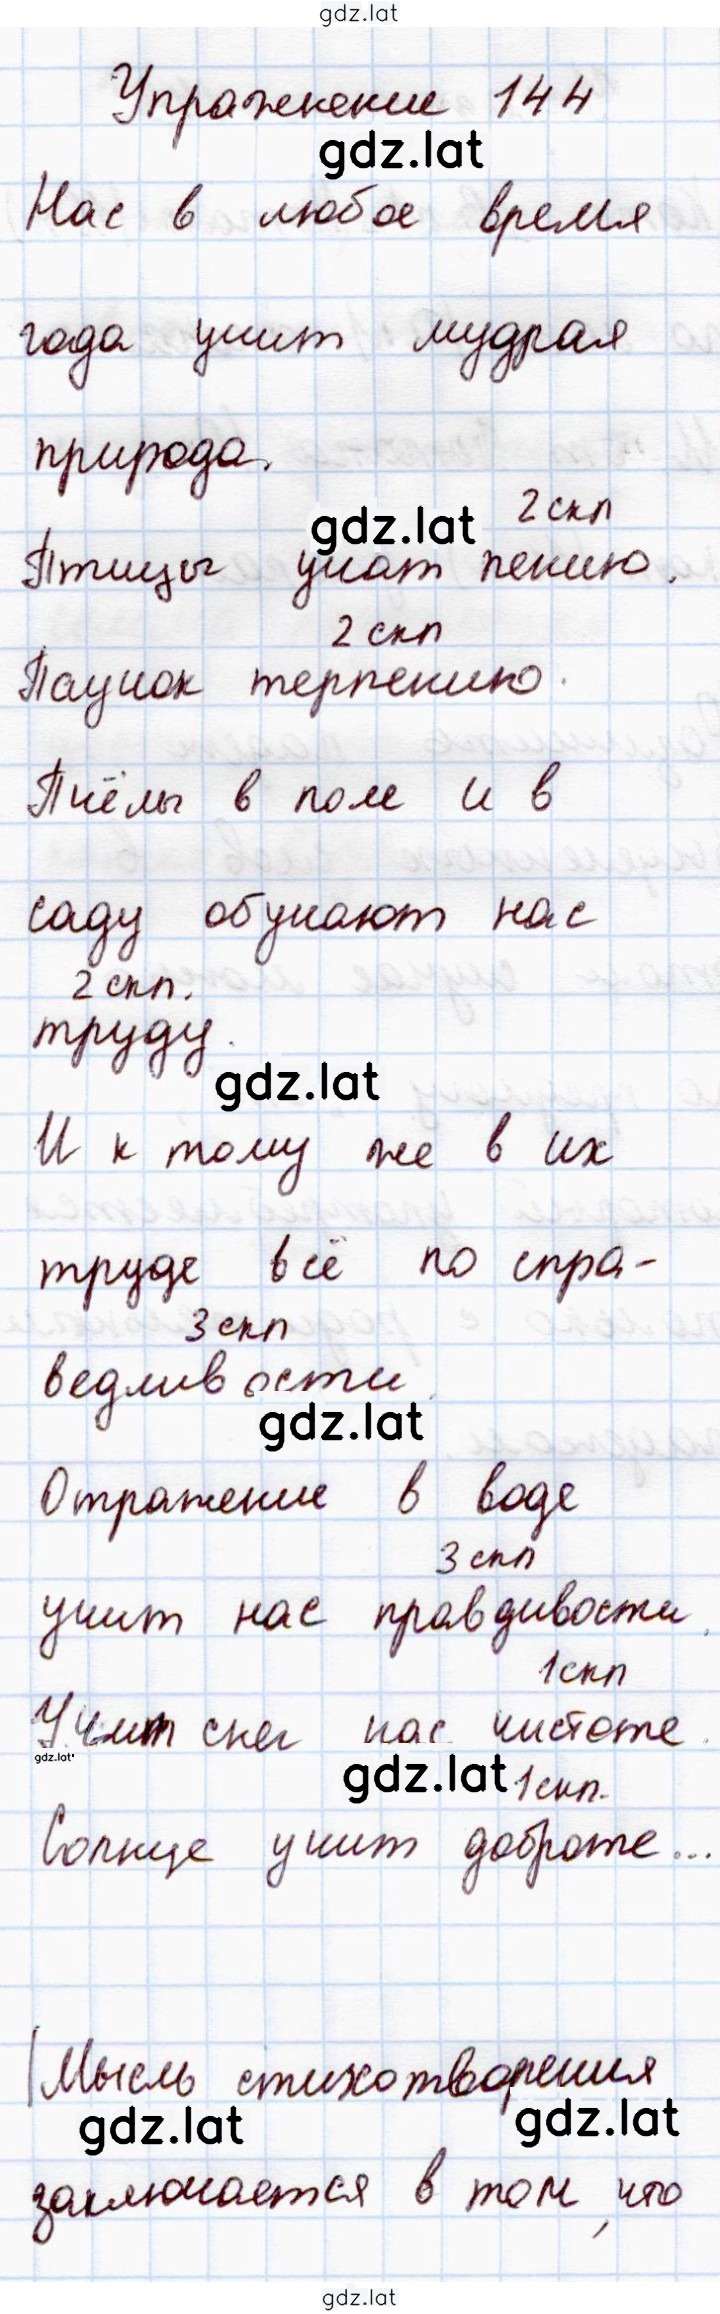 gdz.lat
Упражнение 144
gdz.lat
Нас в любое время
года учит мудрая
природа.
2 скл
gdz.lat
Птицы учат пению.
2 скл
Паучок терпению.
Пчёлы в поле и в
саду обучают нас
2 скл.
труду.
gdz.lat
И к тому же в их
труде всё по спра-
3 скл
ведливости.
gdz.lat
Отражение в воде
3 скл
учит нас правдивости.
1 скл
Учит снег нас чистоте.
gdz.lat
gdz.lat 1 скл.
Солнце учит доброте...
Мысль стихотворения
gdz.lat gdz.lat
заключается в том, что
gdz.lat